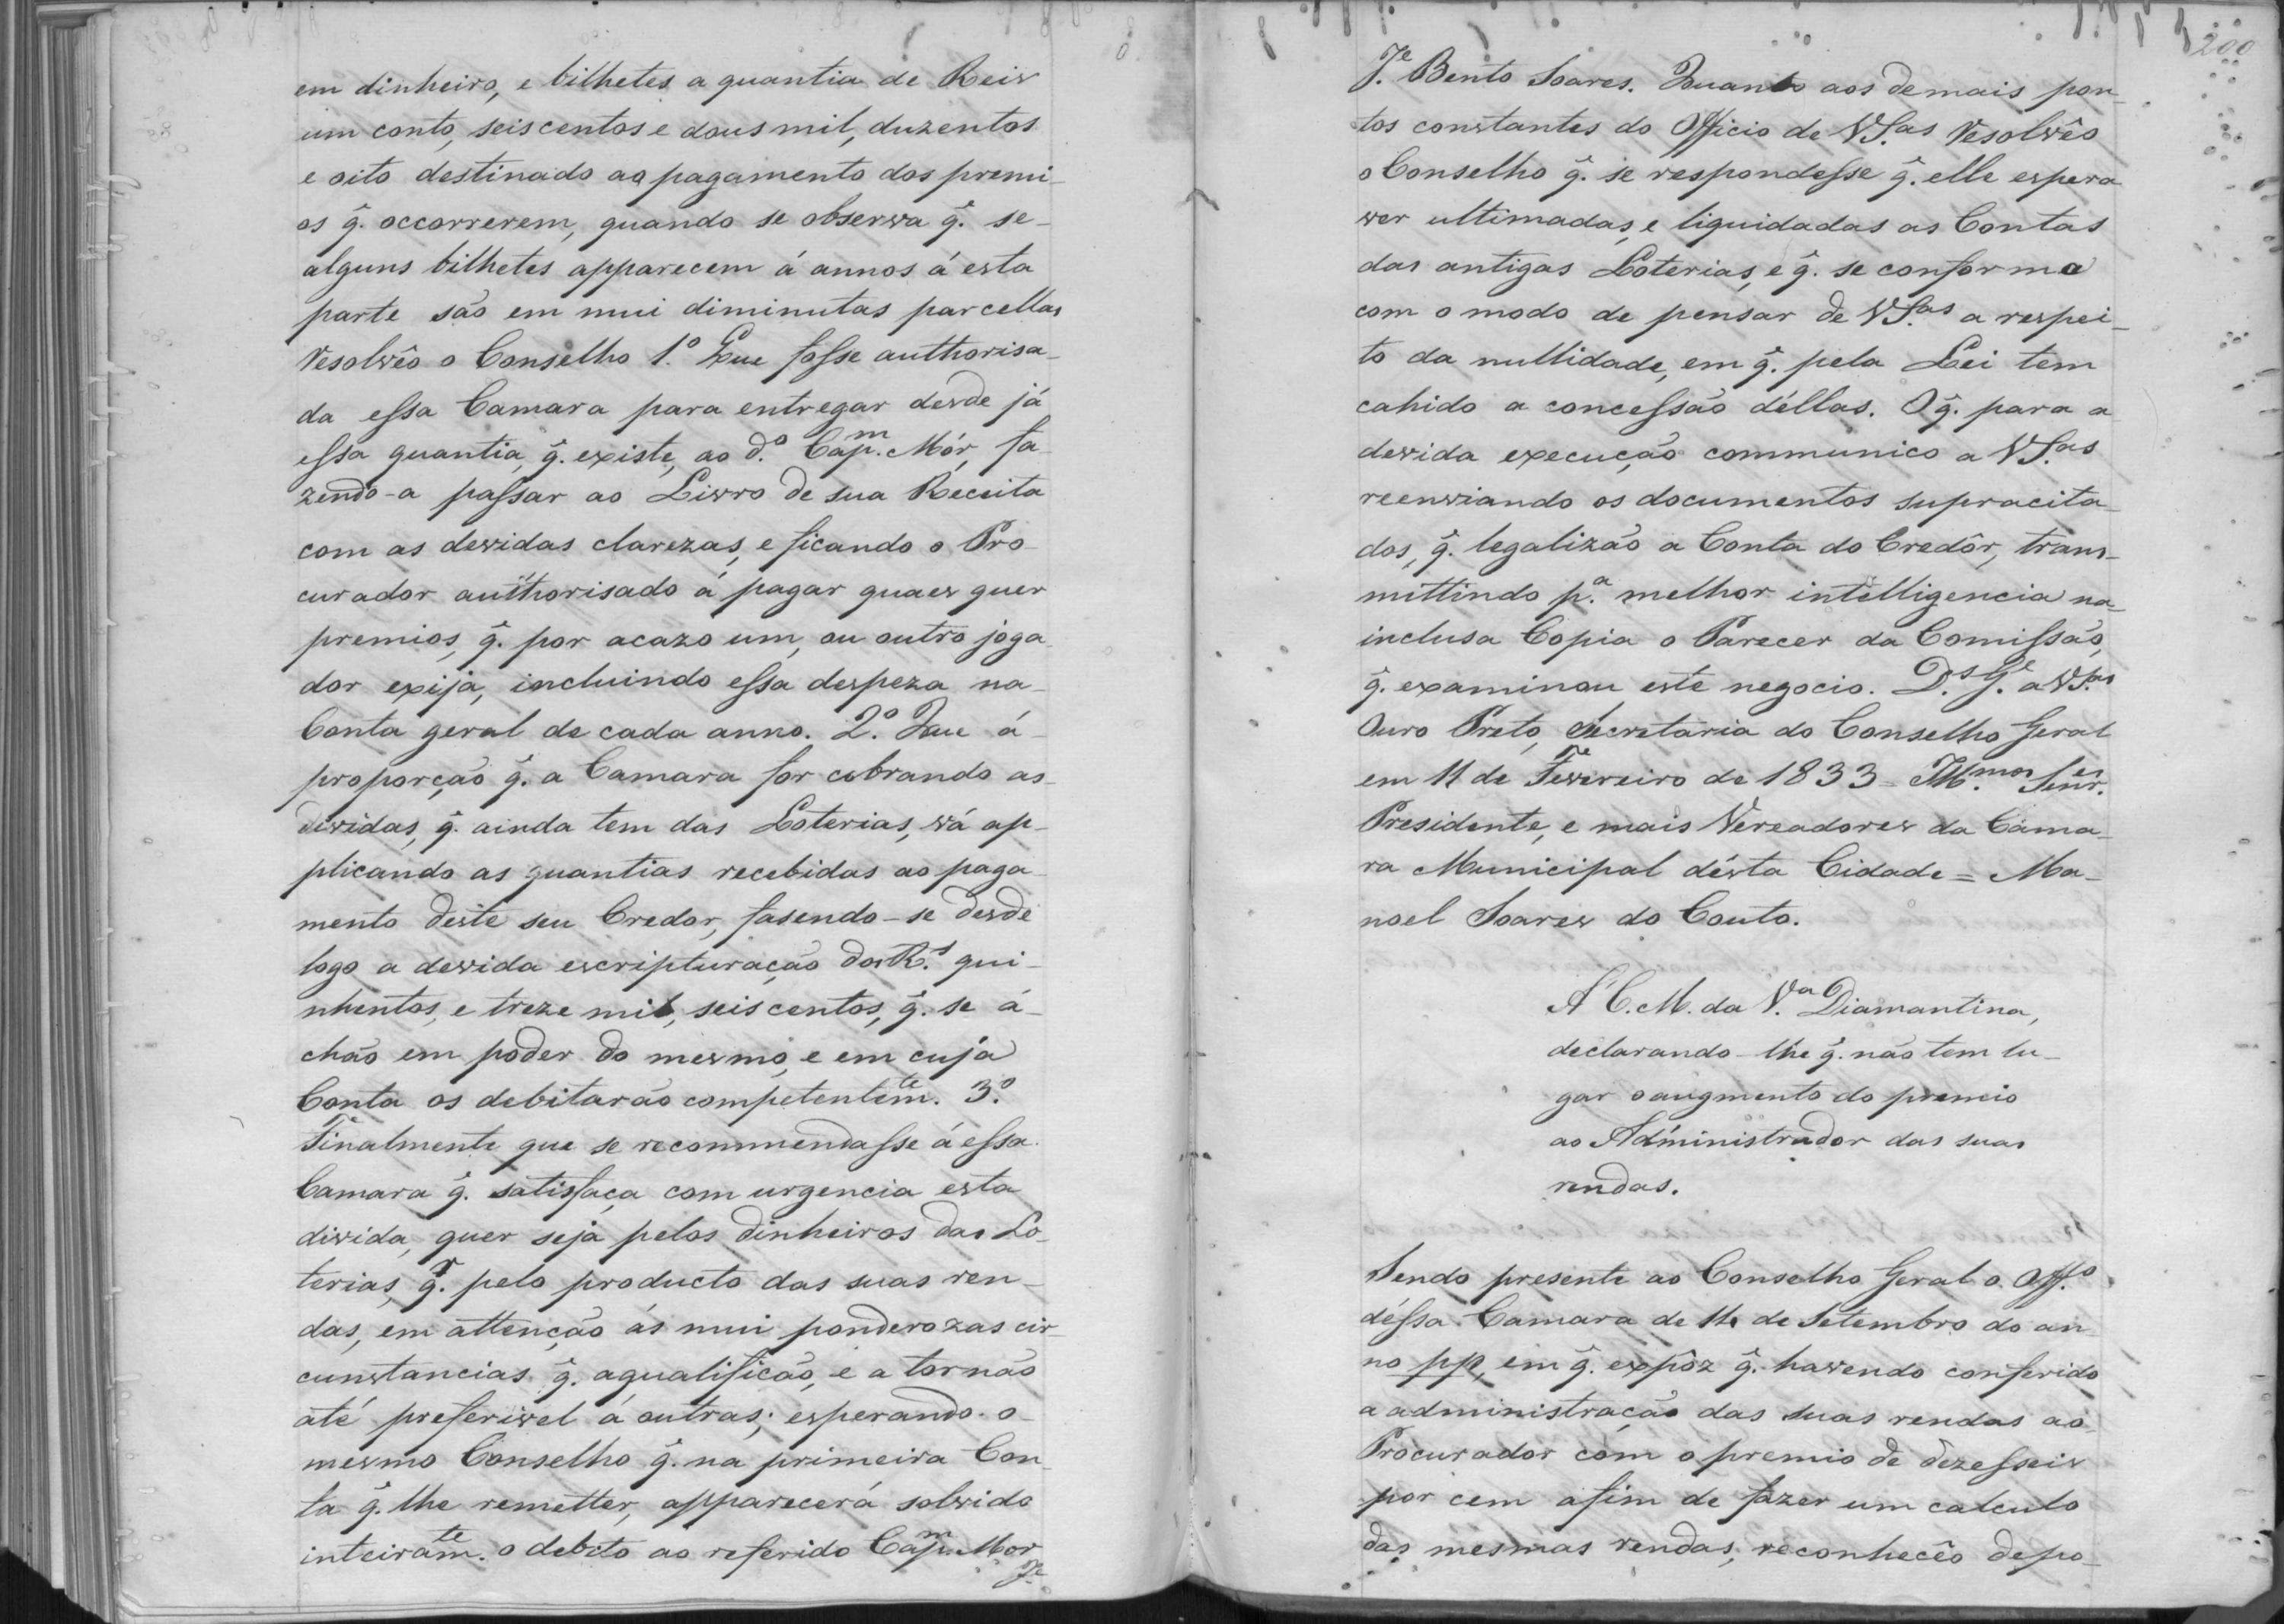 em dinheiro, e bilhetes a quantia de Reis
um conto, seiscentos e dous mil, duzentos
e oito destinado ao pagamento dos premi-
os q̂. occorrerem, quando se observa q̂. se-
alguns bilhetes apparecem á annos á esta
parte são em mui diminutas parcellas
Resolvêo o Conselho 1.º Que fosse authorisa-
da essa Camara para entregar desde já
essa quantia, q̂. existe, ao d.º Cap.m Mór, fa-
zendo-a passar ao Livro de sua Receita
com as devidas clarezas, e ficando o Pro-
curador authorisado á pagar quaes quer
premios, q̂. por acazo um, ou outro joga-
dor exija, incluindo essa despeza na-
Conta geral de cada anno. 2.º Que á-
proporção q̂. a Camara for cobrando as-
dividas, q̂. ainda tem das Loterias, vá ap-
plicando as quantias recebidas ao paga-
mento deste seu Credor, fasendo-se desde
logo a devida escripturação dos R.s qui-
nhentos, e treze mil, seis centos, q̂. se á-
chão em poder do mesmo, e em cuja
Conta os debitarão competentem.te 3.º
Finalmente que se recommendasse á essa
Camara q̂. satisfaça com urgencia esta
divida, quer seja pelos dinheiros das Lo-
terias, q.r pelo producto das suas ren-
das, em attenção ás mui ponderozas cir-
cunstancias q̂. aqualificão, e a tornão
até preferivel á outras; esperando o-
mesmo Conselho q̂. na primeira Con-
ta q̂. lhe remetter, apparecerá solvido
inteiram.te o debito ao referido Cap.m Mor
J.e
200
J.e Bento Soares. Quanto aos demais pon-
tos constantes do Officio de VS.as Resolvêo
o Conselho q̂. se respondesse q̂. elle espera
ver ultimadas, e liquidadas as Contas
das antigas Loterias, e q̂. se conforma
com o modo de pensar de VS.as a respei-
to da nullidade, em q̂. pela Lei tem
cahido a concessão déllas. O q̂. para a
devida execução communico a VS.as
reenviando os documentos supracita-
dos, q̂. legalizão a Conta do Credôr, trans-
mittindo p.a melhor intelligencia na-
inclusa Copia o Parecer da Comissão,
q̂. examinou este negocio. D.s G.e a VS.as
Ouro Preto, Secretaria do Conselho Geral
em 11 de Fevereiro de 1833 = Ill.mos Senr.es
Presidente, e mais Vereadores da Cama-
ra Municipal désta Cidade = Ma-
noel Soares do Couto.
A' C. M. da V.a Diamantina,
declarando-lhe q̂. não tem lu-
gar o augmento do premio
ao Administrador das suas
rendas.
Sendo presente ao Conselho Geral o Off.o
déssa Camara de 11 de Setembro do an-
no pp, em q̂. expôz q̂. havendo conferido
a administração das suas rendas ao
Procurador com o premio de dezesseis
por cem afim de fazer um calculo
das mesmas rendas, reconhecêo depo-